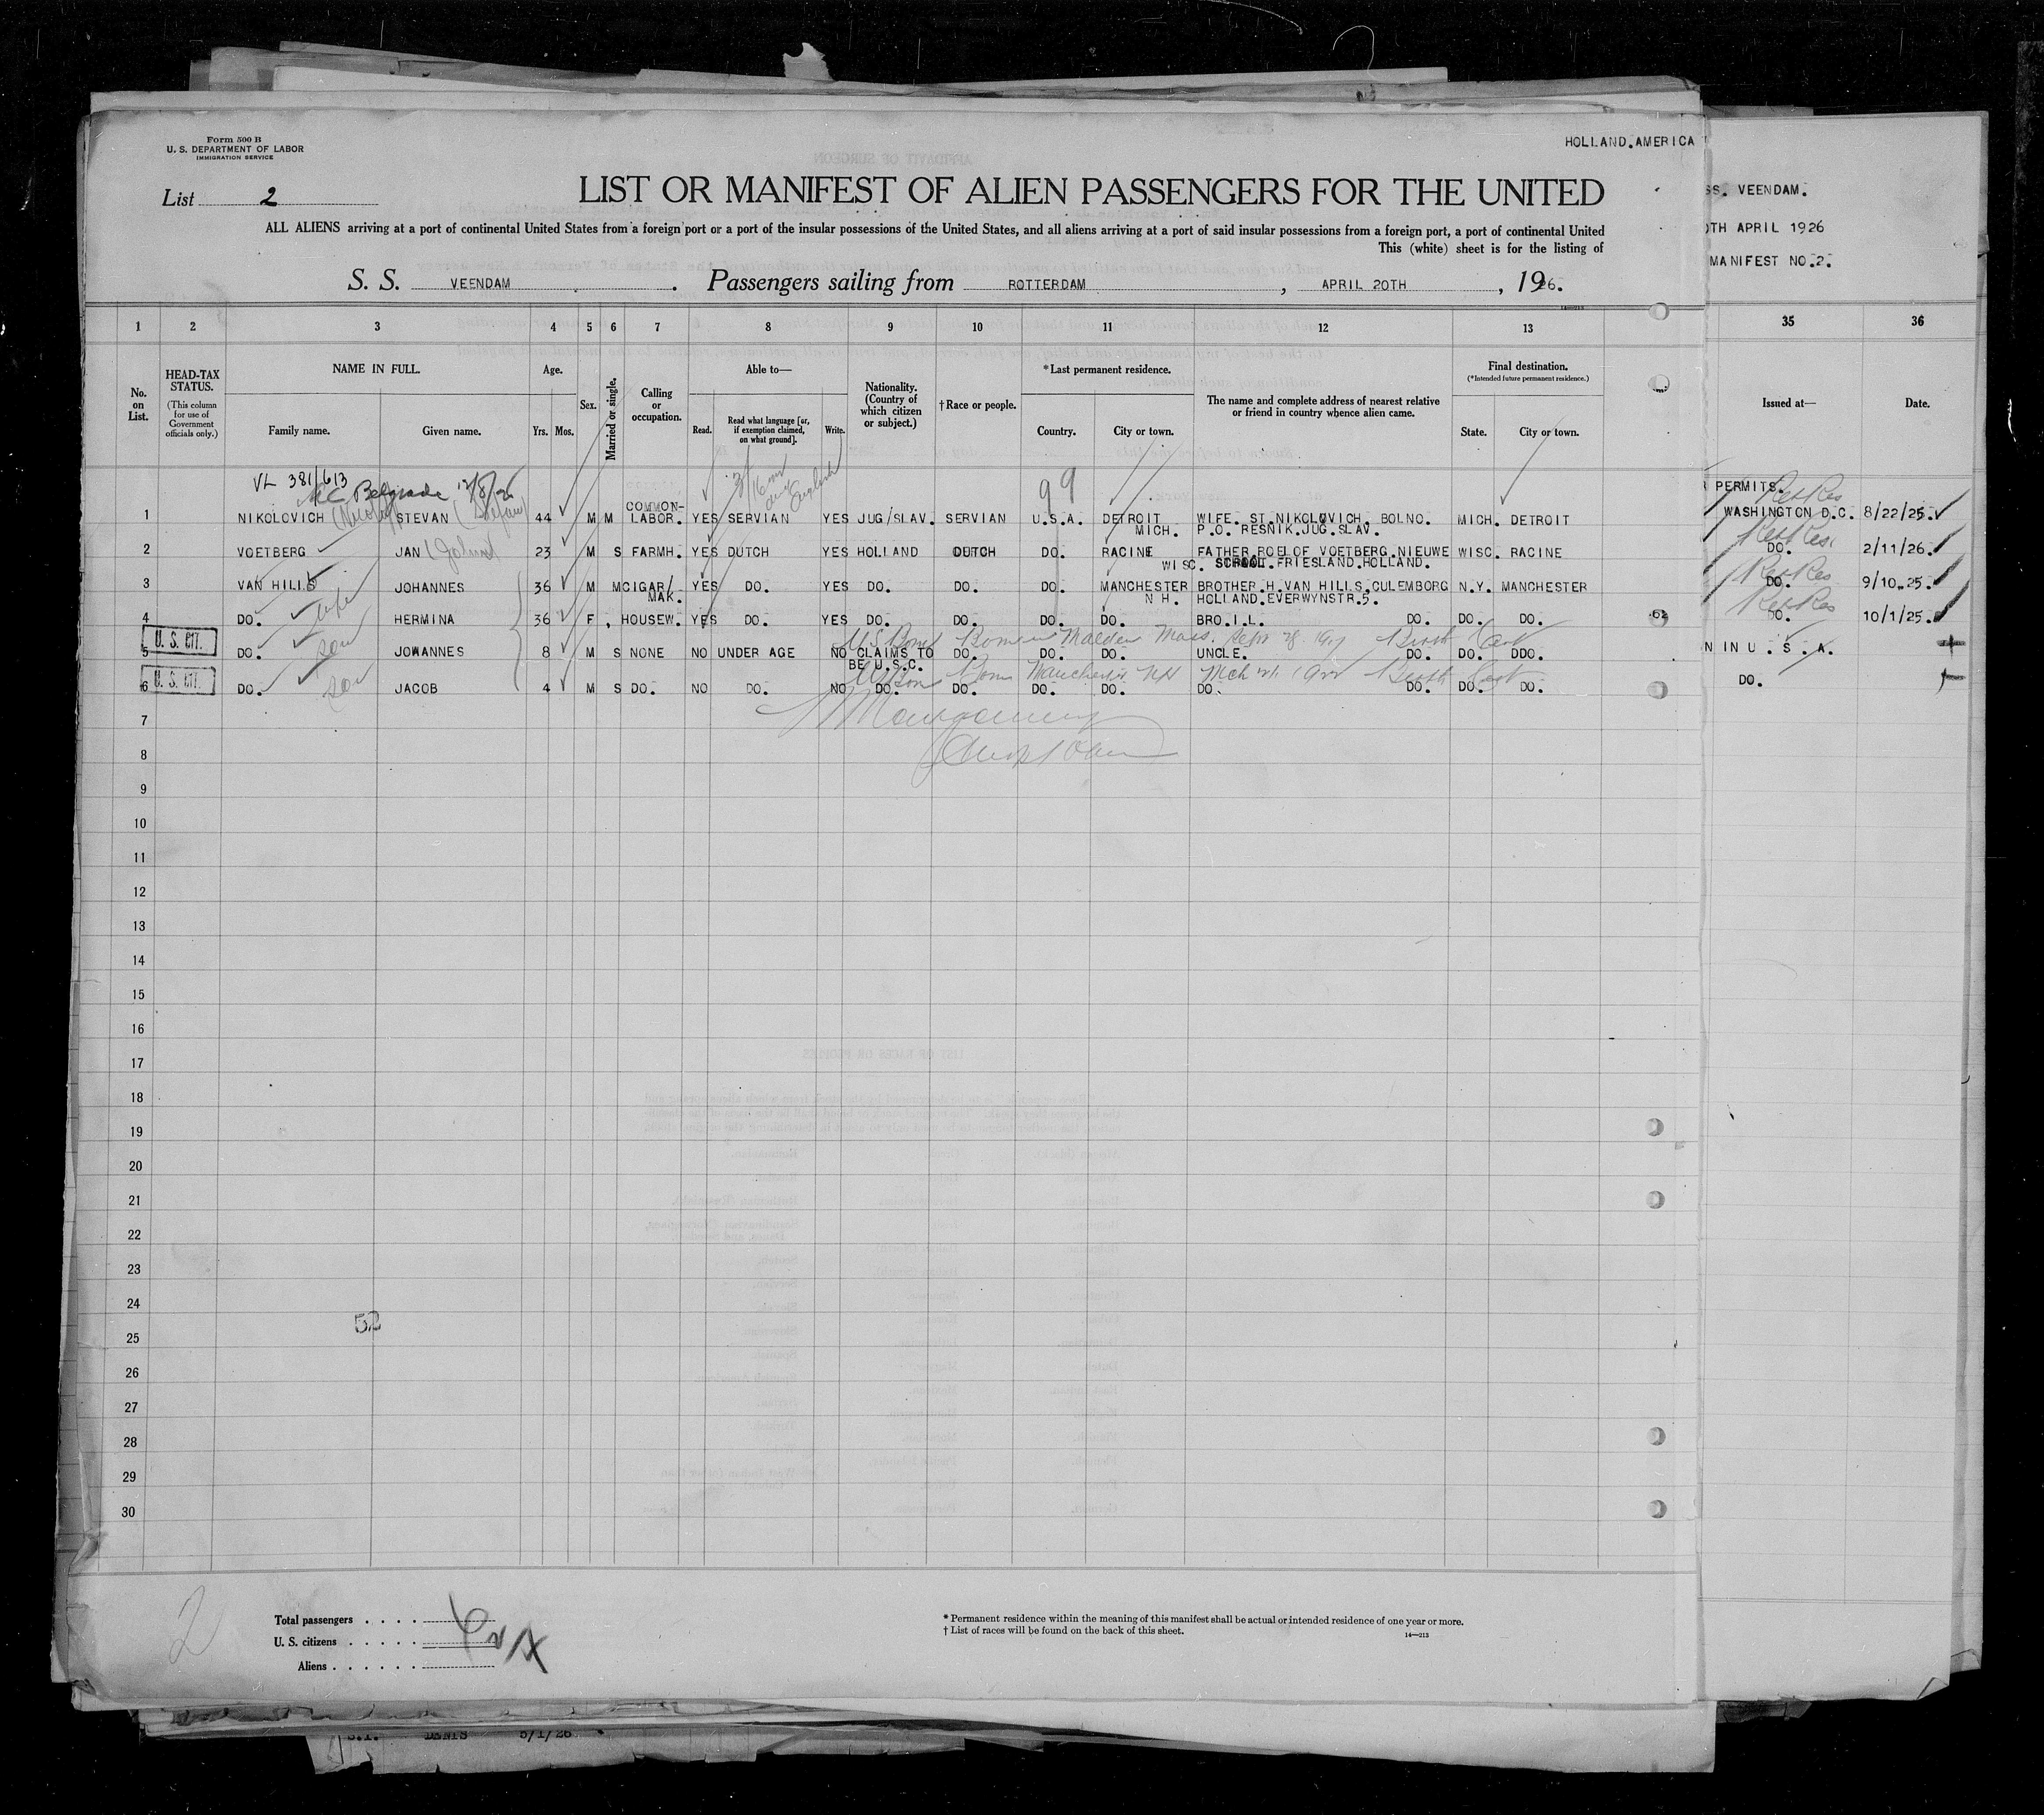 Form 500 B
U. S. DEPARTMENT OF LABOR
IMMIGRATION SERVICE
HOLLAND.AMERICA
List 2
LIST OR MANIFEST OF ALIEN PASSENGERS FOR THE UNITED
SS. VEENDAM.
ALL ALIENS arriving at a port of continental United States from a foreign port or a port of the insular possessions of the United States, and all aliens arriving at a port of said insular possessions from a foreign port, a port of continental United
TH APRIL 1926
This (white) sheet is for the listing of
MANIFEST NO.2.
S. S. VEENDAM . Passengers sailing from ROTTERDAM , APRIL 20TH , 1926.
1 2 3 4 5 6 7 8 9 10 11 12 13 35 36
No. on List.
HEAD-TAX STATUS.
(This column for use of Government officials only.)
NAME IN FULL.
Family name. Given name.
Age.
Yrs. Mos.
Sex.
Married or single.
Calling or occupation.
Able to—
Read. Read what language [or, if exemption claimed, on what ground]. Write.
Nationality. (Country of which citizen or subject.)
† Race or people.
*Last permanent residence.
Country. City or town.
The name and complete address of nearest relative or friend in country whence alien came.
Final destination.
(*Intended future permanent residence.)
State. City or town.
Issued at— Date.
VL 381/613
Belgrade
99
PERMITS.
1 NIKOLOVICH STEVAN (Stefan) 44 M M COMMON-LABOR. YES SERVIAN YES JUG/SLAV. SERVIAN U.S.A. DETROIT MICH. WIFE. ST.NIKOLOVICH. BOLNO. P.O. RESNIK.JUG.SLAV. MICH. DETROIT WASHINGTON D.C. 8/22/25.
2 VOETBERG JAN (John) 23 M S FARMH. YES DUTCH YES HOLLAND DUTCH DO. RACINE WISC. FATHER.ROELOF VOETBERG.NIEUWE SCHOOT.FRIESLAND.HOLLAND. WISC. RACINE DO. 2/11/26.
3 VAN HILLS JOHANNES 36 M M CIGAR/MAK. YES DO. YES DO. DO. DO. MANCHESTER N H. BROTHER.H.VAN HILLS.CULEMBORG HOLLAND.EVERWYNSTR.5. N.Y. MANCHESTER DO. 9/10.25.
4 DO. wife HERMINA 36 F , HOUSEW. YES DO. YES DO. DO. DO. DO. BRO.I.L. DO. DO. DO. DO. 10/1/25.
62
U. S. CIT.
5 DO. son JOWANNES 8 M S NONE NO UNDER AGE NO CLAIMS TO BE U.S.C. DO. DO. DO. UNCLE. DO. DO. DDO. N IN U.S.A.
Malden Mass.
U. S. CIT.
6 DO. son JACOB 4 M S DO. NO DO. NO DO. DO. DO. DO. DO. DO. DO. DO. DO.
Manchester NH
7
8
9
10
11
12
13
14
15
16
17
18
19
20
21
22
23
24
52
25
26
27
28
29
30
2
Total passengers . . . .
U. S. citizens . . . . .
Aliens . . . . . .
* Permanent residence within the meaning of this manifest shall be actual or intended residence of one year or more.
† List of races will be found on the back of this sheet.
14—213
5/1/26